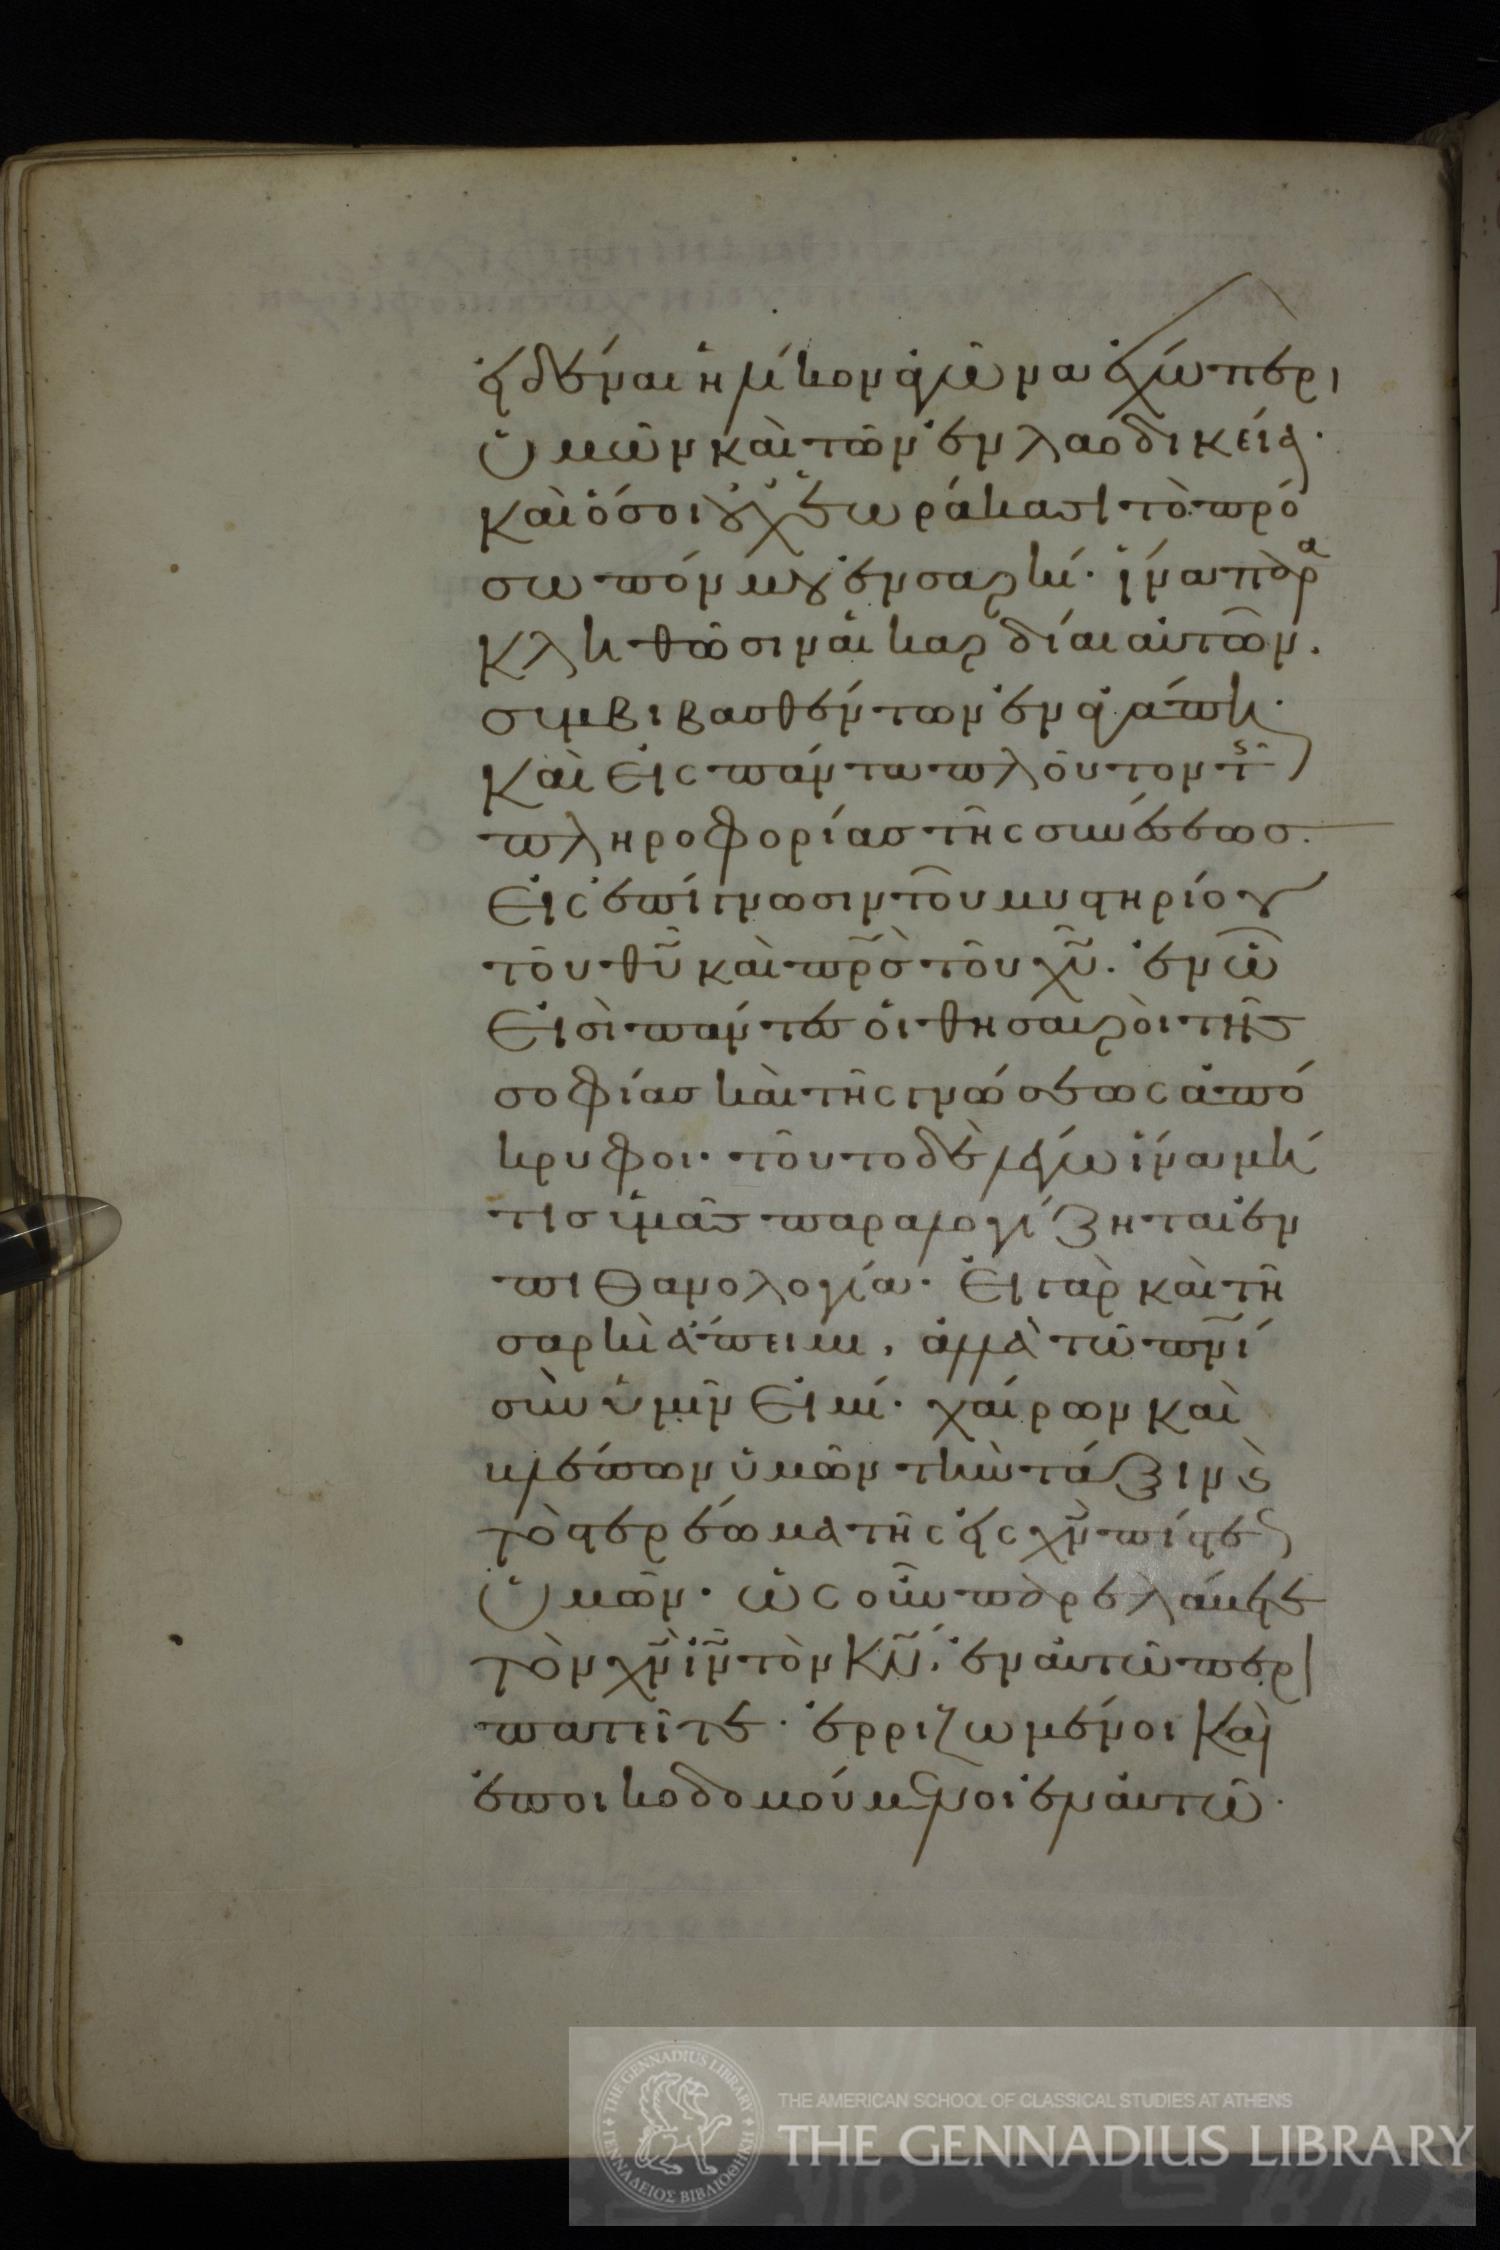 εἰδέναι ἡλίκον ἀγῶνα ἔχω περὶ
ὑμῶν καὶ τῶν ἐν λαοδικεία·
καὶ ὅσοι οὐχ ἑωράκασι τὸ πρό
σωπόν μου ἐν σαρκί· ἵνα παρα
κληθῶσιν αἱ καρδίαι αὐτῶν.
συμβιβασθέντων ἐν ἀγάπη·
καὶ εἰς πάντα πλοῦτον τῆς
πληροφορίας τῆς συνέσεως.
εἰς ἐπίγνωσιν τοῦ μυστηρίου
τοῦ θῦ καὶ πρς τοῦ χῦ. ἐν ὧ
εἰσὶ πάντες οἱ θησαυροὶ τῆς
σοφίας καὶ τῆς γνώσεως ἀπό
κρυφοι· τοῦτο δὲ λέγω ἵνα μή
τις ὑμᾶς παραλογίζηται ἐν
πιθανολογία· εἰ γὰρ καὶ τῆ
σαρκὶ ἄπειμι, ἀλλὰ τῶ πνί
σὺν ὑμῖν εἰμί· χαίρων καὶ
βλέπων ὑμῶν τὴν τάξιν καὶ
τὸ στερέωμα τῆς εἰς χν πίστεως
ὑμῶν· ὡς οὖν παρελάβετε
τὸν χν ιν τὸν κν, ἐν αὐτῶ περι
πατεῖτε· ἐρριζωμένοι καὶ
ἐποικοδομούμενοι ἐν αὐτῶ·
THE GENNADIUS LIBRARY
ΓΕΝΝΑΔΕΙΟΣ ΒΙΒΛΙΟΘΗΚΗ
THE AMERICAN SCHOOL OF CLASSICAL STUDIES AT ATHENS
THE GENNADIUS LIBRARY